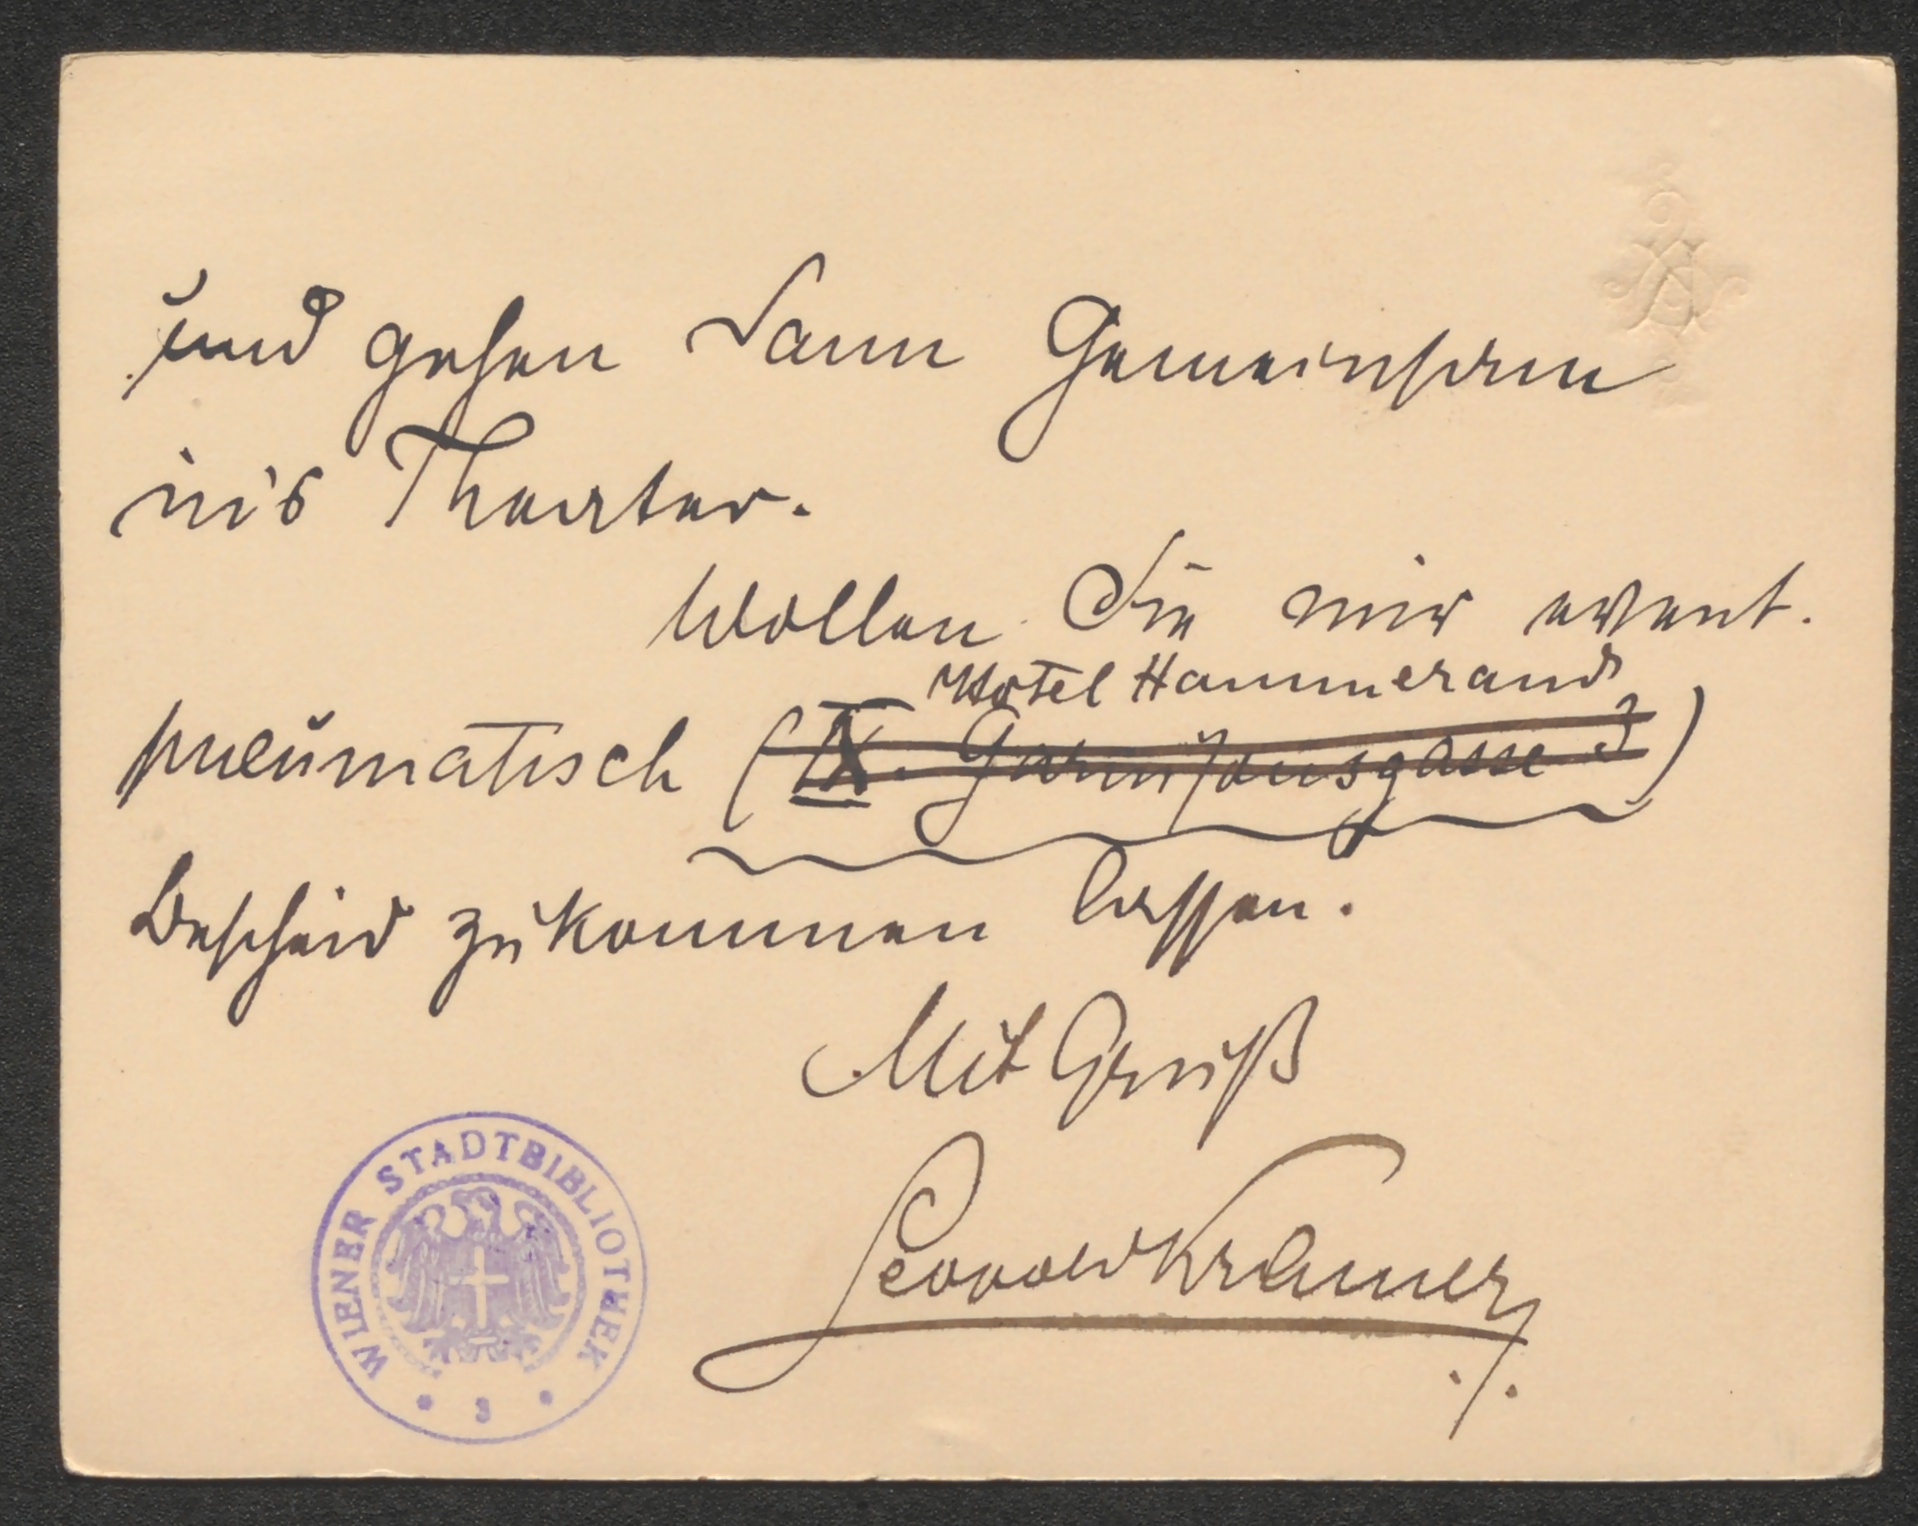 und gehen dann Gemeinsam
in's Theater.
Wollen Sie mir event.
Hotel Hammerand
pneumatisch (IX. Garnisonsgasse 3)
Bescheid zukommen lassen.
Mit Gruß
Leopold Kramer
WIENER STADTBIBLIOTHEK
* 3 *